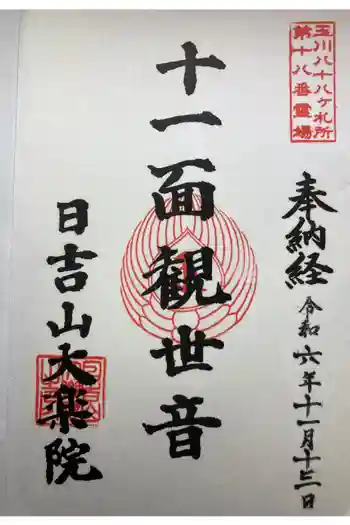 玉川八十八ヶ札所
第十八番霊場
奉納経
令和六年十一月十三日
十一面観世音
日吉山大楽院